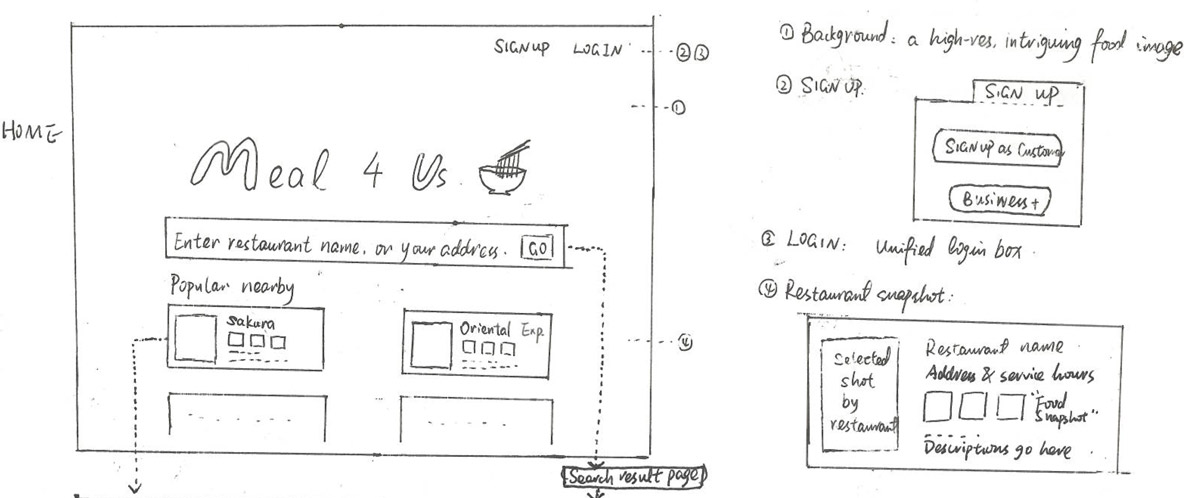 SIGNUP LOGIN
② ③
①
HOME
Meal 4 Us
Enter restaurant name, or your address. GO
Popular nearby
Sakura
Oriental Exp.
④
Search result page
① Background: a high-res, intriguing food image
② SIGN UP.
SIGN UP
SIGNUP as Customer
Business+
③ LOGIN: Unified login box.
④ Restaurant snapshot:
Selected
shot
by
restaurant
Restaurant name
Address & service hours
"Food
Snapshot"
Descriptions go here